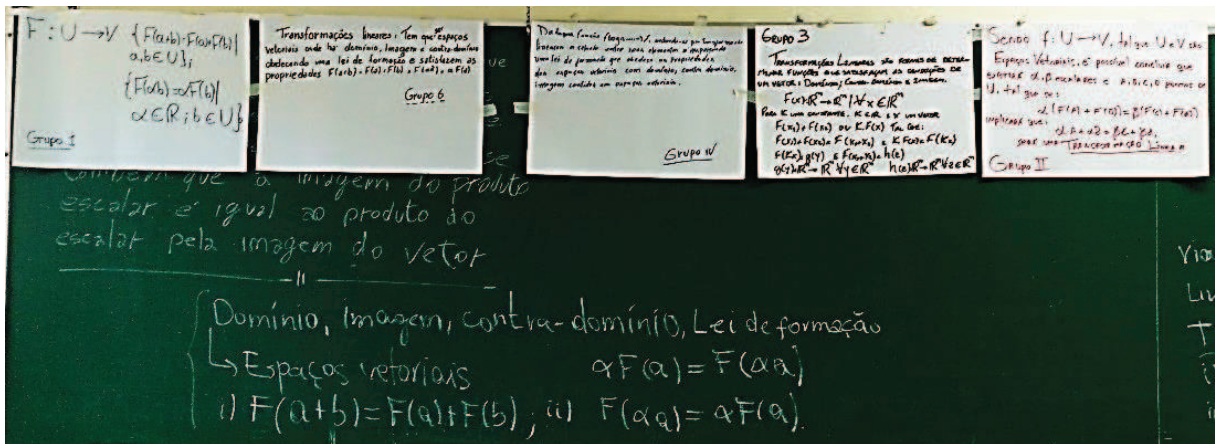 F: U → V {F(a+b)=F(a)+F(b)|
a,b ∈ U};
{F(αb)=αF(b)|
α ∈ R; b ∈ U}
Grupo 1
Transformações lineares: Tem que espaços
vetoriais onde há domínio, Imagem e contra-domínio
obedecendo uma lei de formação e satisfazem as
propriedades F(a+b)=F(a)+F(b), F(αa)=αF(a)
Grupo 6
uma lei de formação que obedeça as propriedades
dos espaços vetoriais com domínio, contra domínio,
imagem contidos em espaços vetoriais.
Grupo IV
GRUPO 3
TRANSFORMAÇÕES LINEARES SÃO FORMAS DE DETER-
MINAR FUNÇÕES QUE SATISFAÇAM AS CONDIÇÕES DE
UM VETOR: DOMÍNIO, CONTRA DOMÍNIO E IMAGEM.
F(x):R^n → R^m | ∀x ∈ R^n
PARA K UMA CONSTANTE, K ∈ R E X UM VETOR
F(x₁)+F(x₂) OU K.F(x) TAL QUE:
F(x₁)+F(x₂)=F(x₁+x₂) E K F(x)=F(Kx)
Sendo f: U → V, tal que U e V são
Espaços Vetoriais, é possível concluir que
existas α, β escalares e A, B, C, D pontos de
U, tal que se:
implicará que:
será uma TRANSFORMAÇÃO LINEAR
GRUPO II
ve
se
também que a imagem do produto
escalar é igual ao produto do
escalar pela imagem do vetor
Domínio, Imagem, contra-domínio, Lei de formação
↳ Espaços vetoriais αF(a)=F(αa)
i) F(a+b)=F(a)+F(b), ii) F(αa)=αF(a)